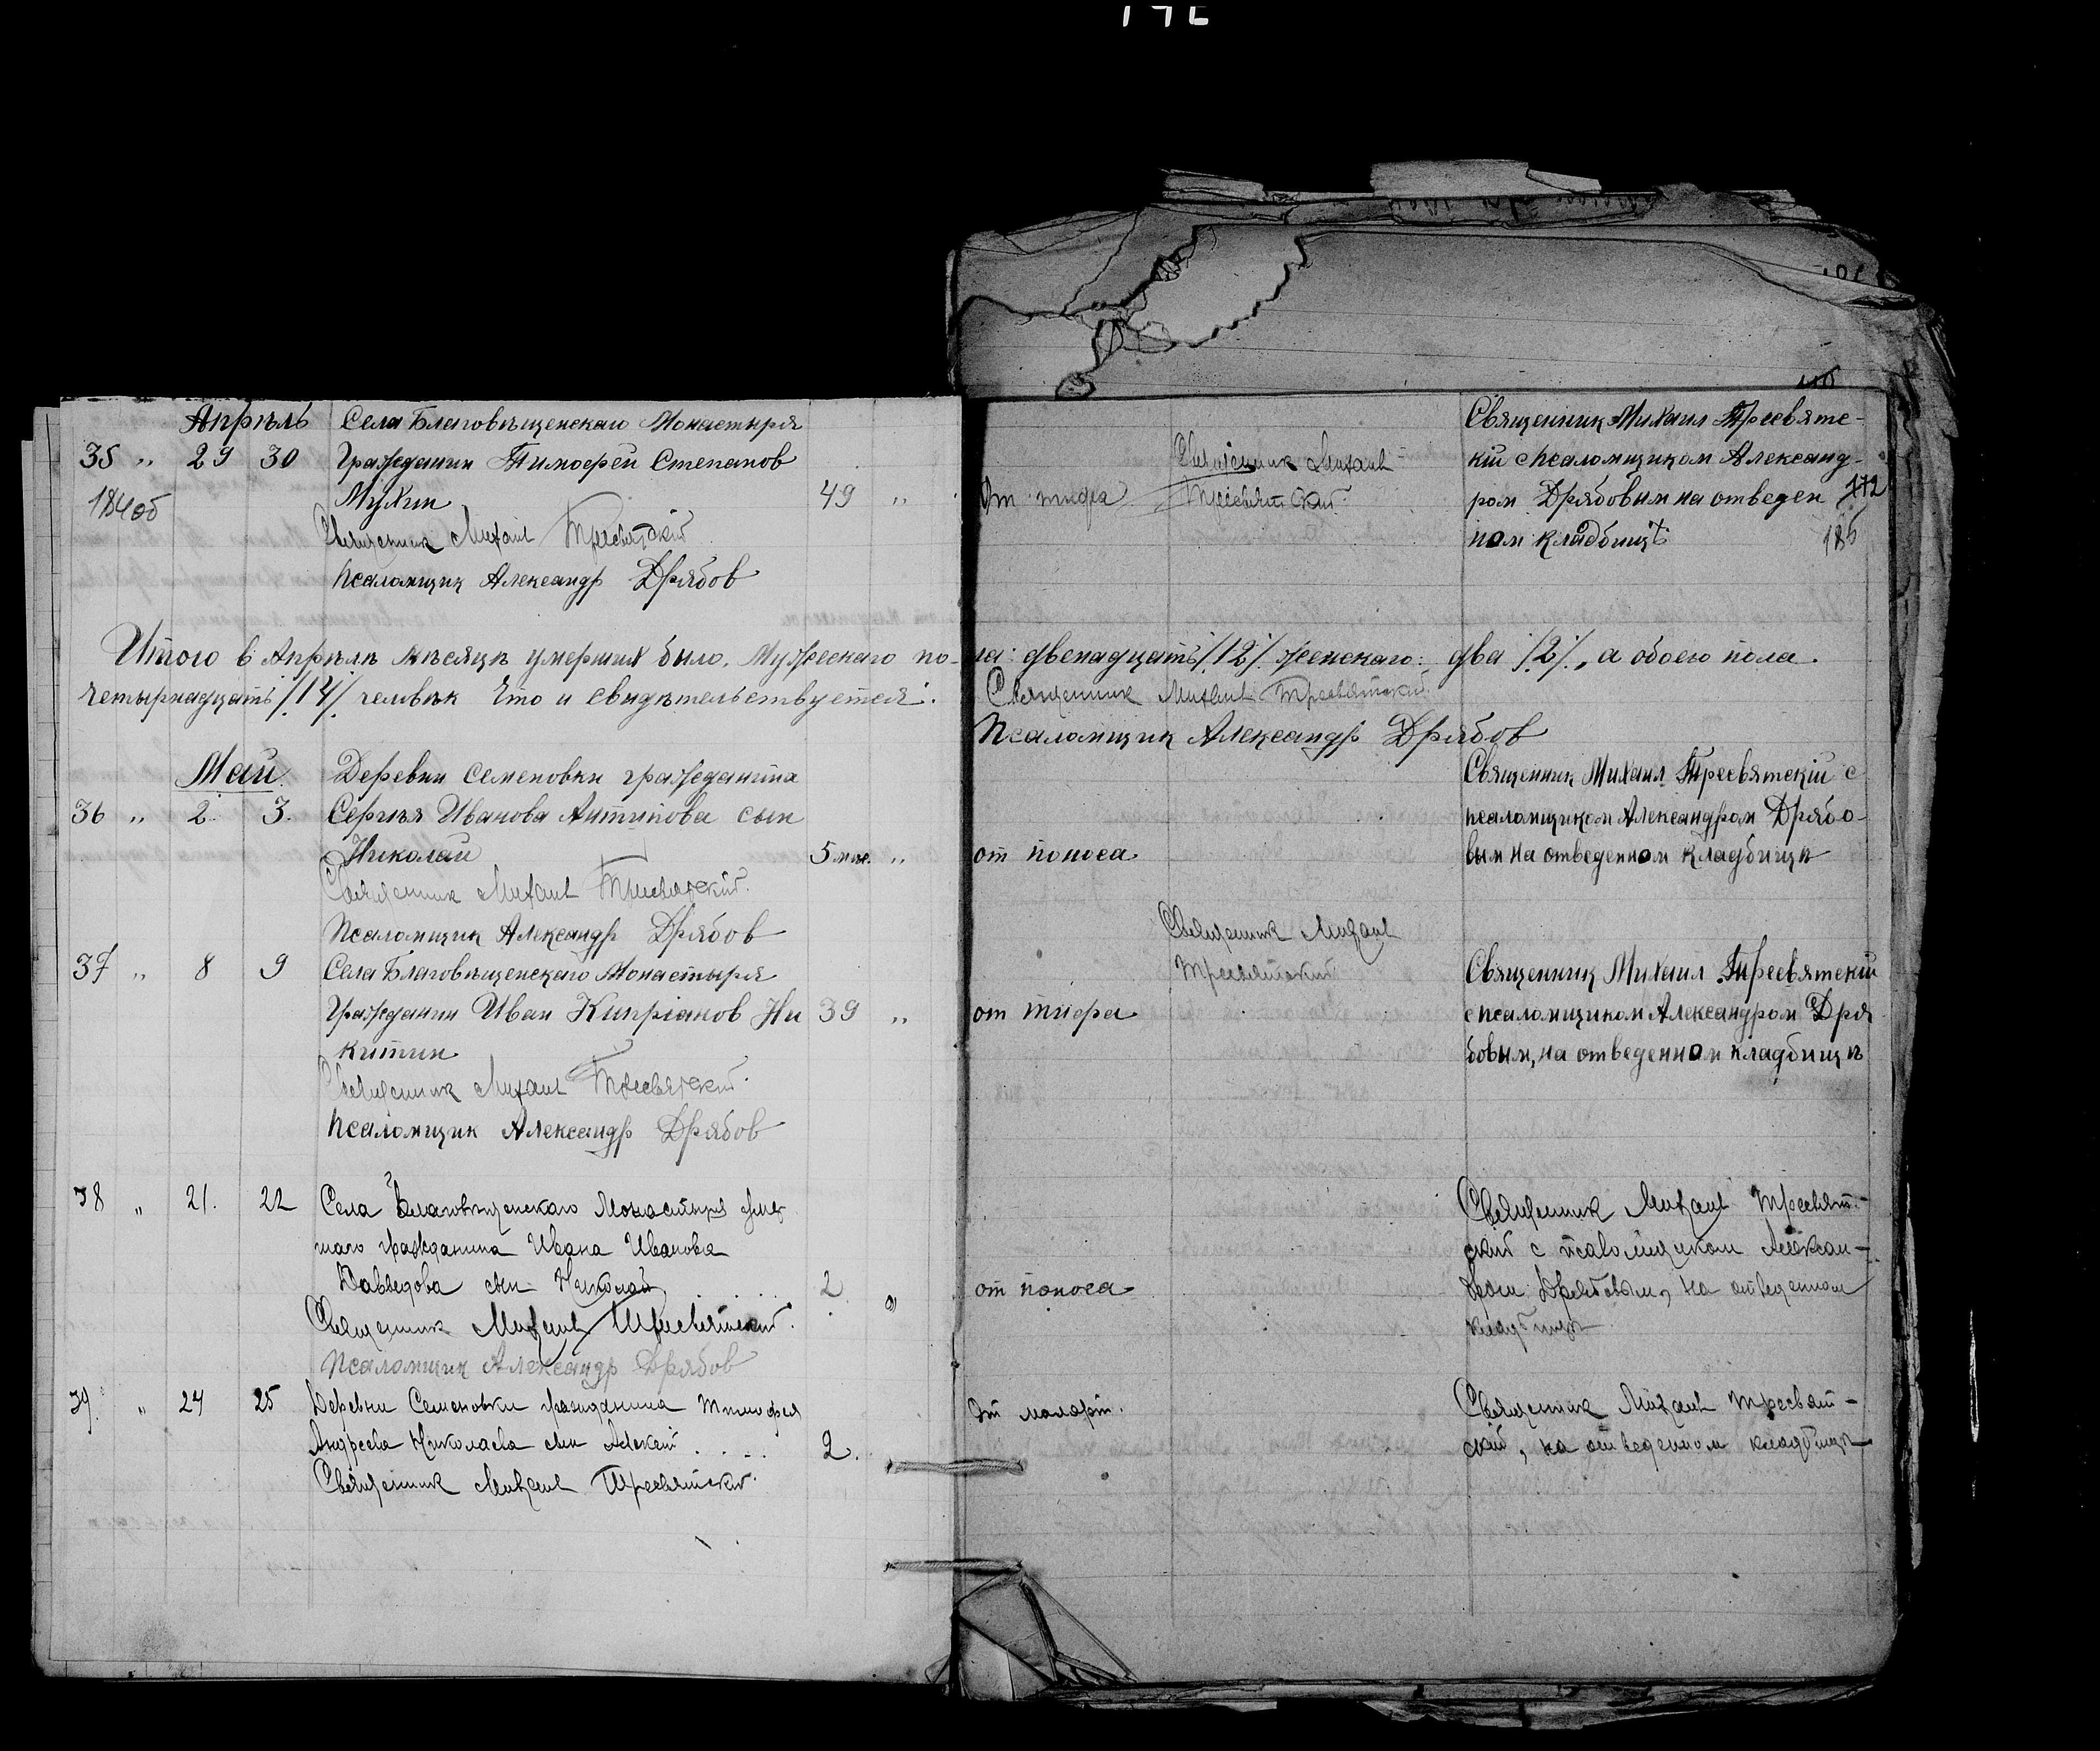 Апрѣль Села Благовѣщенскаго Монастыря
35 „ 29 30 Гражданин Тимофей Степанов
Мухин 49 „
184об
Священник Михаил Тресвятский
Псаломщик Александр Дрябов
От тифа
Священник Михаил
Тресвятский.
Священник Михаил Тресвятс-
кiй с псаломщиком Александ-
ром Дрябовым на отведен
ном кладбищѣ
172
185
Итого в Апрѣлѣ мѣсяцѣ умерших было. Мужескаго по-ла: двенадцать /12/ женскаго: два /2/, а обоего пола.
четырнадцать /14/ человѣк Что и свидѣтельствуется.
Священник Михаил Тресвятский.
Псаломщик Александр Дрябов
Май Деревни Семеновки гражданина
36 „ 2. 3. Сергѣя Иванова Антипова сын
Николай 5 мѣс. „
Священник Михаил Тресвятский.
Псаломщик Александр Дрябов
от поноса
Священник Михаил Тресвятскiй с
псаломщиком Александром Дрябо-
вым на отведенном кладбищѣ
37 „ 8 9 Села Благовѣщенскаго Монастыря
Гражданин Иван Кипрiанов Ни 39 „
китин
Священник Михаил Тресвятский.
Псаломщик Александр Дрябов
от тифа
Священник Михаил
Тресвятский
Священник Михаил Тресвятскiй
с псаломщиком Александром Дря
бовым, на отведенном кладбищѣ
38 „ 21. 22 Села Благовѣщенскаго Монастыря
гражданина Ивана Иванова
Давыдова сын Николай 2 „
Священник Михаил Тресвятский.
Псаломщик Александр Дрябов
от поноса
Священник Михаил Тресвят-
ский с псаломщиком Алексан-
дром Дрябовым, на отведенном
кладбищѣ
39. „ 24 25 Деревни Семеновки гражданина Тимофея
Андреева Николаева сын Алексей 2.
Священник Михаил Тресвятский.
От
Священник Михаил Тресвят-
ский, на отведенном кладбищѣ